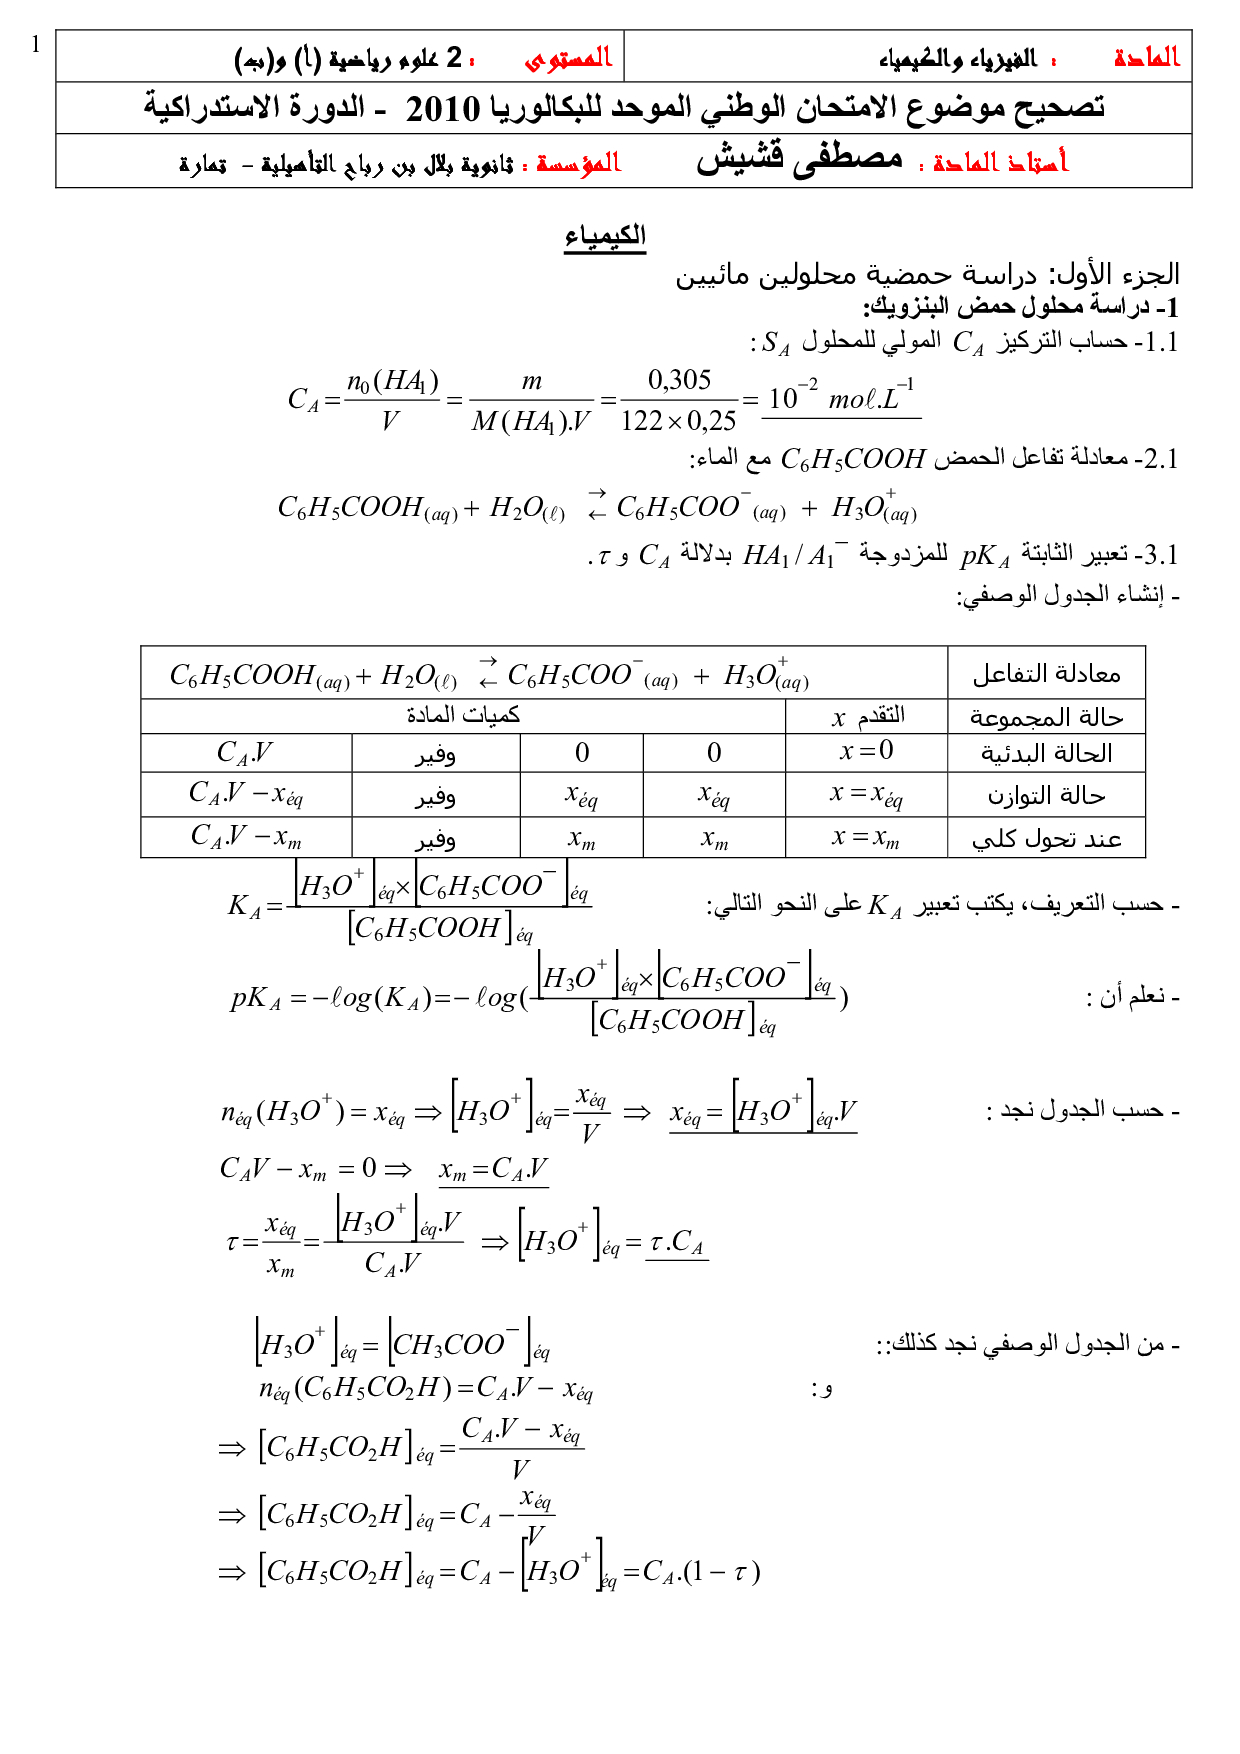 1
المادة : الفيزياء والكيمياء المستوى : 2 علوم رياضية (أ) و(ب)
تصحيح موضوع الامتحان الوطني الموحد للبكالوريا 2010 - الدورة الاستدراكية
أستاذ المادة : مصطفى قشيش المؤسسة : ثانوية بلال بن رباح التأهيلية - تمارة
الكيمياء
الجزء الأول: دراسة حمضية محلولين مائيين
1- دراسة محلول حمض البنزويك:
1.1- حساب التركيز C_A المولي للمحلول S_A :
C_A = n₀(HA₁)/V = m/(M(HA₁).V) = 0,305/(122×0,25) = 10⁻² moℓ.L⁻¹
2.1- معادلة تفاعل الحمض C₆H₅COOH مع الماء:
C₆H₅COOH(aq) + H₂O(ℓ) ⇄ C₆H₅COO⁻(aq) + H₃O⁺(aq)
3.1- تعبير الثابتة pK_A للمزدوجة HA₁/A₁⁻ بدلالة C_A و τ.
- إنشاء الجدول الوصفي:
معادلة التفاعل C₆H₅COOH(aq) + H₂O(ℓ) ⇄ C₆H₅COO⁻(aq) + H₃O⁺(aq)
حالة المجموعة التقدم x كميات المادة
الحالة البدئية x = 0 0 0 وفير C_A.V
حالة التوازن x = x_éq x_éq x_éq وفير C_A.V − x_éq
عند تحول كلي x = x_m x_m x_m وفير C_A.V − x_m
- حسب التعريف، يكتب تعبير K_A على النحو التالي: K_A = [H₃O⁺]_éq × [C₆H₅COO⁻]_éq / [C₆H₅COOH]_éq
- نعلم أن : pK_A = −ℓog(K_A) = −ℓog([H₃O⁺]_éq × [C₆H₅COO⁻]_éq / [C₆H₅COOH]_éq)
- حسب الجدول نجد : n_éq(H₃O⁺) = x_éq ⇒ [H₃O⁺]_éq = x_éq/V ⇒ x_éq = [H₃O⁺]_éq.V
C_AV − x_m = 0 ⇒ x_m = C_A.V
τ = x_éq/x_m = [H₃O⁺]_éq.V / C_A.V ⇒ [H₃O⁺]_éq = τ.C_A
- من الجدول الوصفي نجد كذلك:: [H₃O⁺]_éq = [CH₃COO⁻]_éq
و: n_éq(C₆H₅CO₂H) = C_A.V − x_éq
⇒ [C₆H₅CO₂H]_éq = (C_A.V − x_éq)/V
⇒ [C₆H₅CO₂H]_éq = C_A − x_éq/V
⇒ [C₆H₅CO₂H]_éq = C_A − [H₃O⁺]_éq = C_A.(1 − τ)